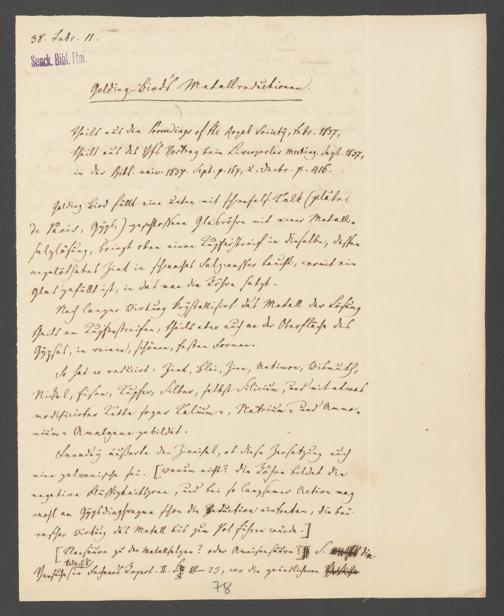 38. Febr. 11.
Senck. Bibl. Ffm.
Golding-Bird's Metallreductionen.
theils aus den Proceedings of the Royal Society, Febr. 1837,
theils aus des Vfs Vortrag beim Liverpooler meeting. Sept. 1837,
in der Bibl. univ. 1837. Sept. p. 167, u. Decbr. p. 416.
Golding Bird füllt eine unten mit Kalk (plâtre
de Paris, Gyps,) geschlossene Glasröhre mit einer Metall-
salzlösung, bringt oben einen Kupferstreif in dieselbe, dessen
angelöthetes Zink in schwaches Salzwasser taucht, womit ein
Glas gefüllt ist, in das man die Röhre setzt.
Nach langer Wirkung krystallisirt das Metall der Lösung
theils am Kupferstreifen, theils aber auch an der Oberfläche des
Gypses, in reinen, schönen, festen Formen.
So hat er reducirt: Zink, Blei, Zinn, Antimon, Wismuth,
Nickel, Eisen, Kupfer, Silber, selbst Silicium, und mit etwas
modificirter Kette sogar Kalium-, Natrium- und Ammo-
nium-Amalgame gebildet.
Faraday äußerte den Zweifel, ob diese Zersetzung auch
eine galvanische sei. [warum nicht? die Röhre bildet die
negative Flüssigkeitszone, und bei so langsamer Action mag
wohl am Gypsdiaphragma schon die Reduction eintreten, die bei
rascher Wirkung das Metall bis zum Pol führen würde.]
[ zu den Metallsalzen? oder Ameisensäure? S. die
Versuche in Fechners Repert. II. 23, wo die
78